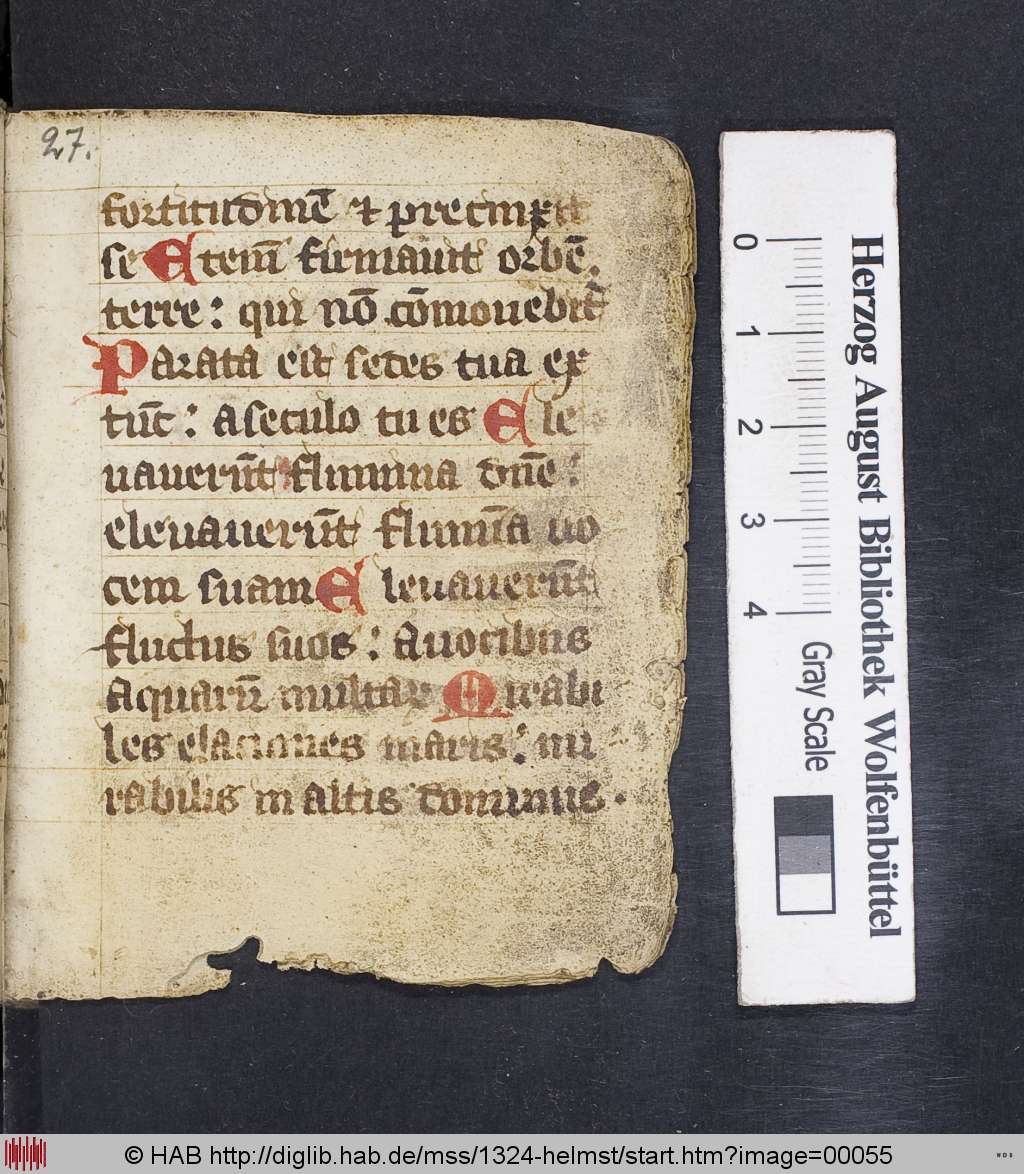 27.
fortitudinē ⁊ precinxit
se Etenī firmauit orbē.
terre: qui nō cōmouebit᷑
Parata est sedes tua ex
tūc: a seculo tu es Ele
uauerūt flumina dn̄e:
eleuauerūt flumīa uo
cem suam Eleuauerūt
fluctus suos: A uocibus
aquarū multaꝝ Mirabi
les elaciones maris: mi
rabilis in altis dominus.
0 1 2 3 4 Gray Scale
Herzog August Bibliothek Wolfenbüttel
© HAB http://diglib.hab.de/mss/1324-helmst/start.htm?image=00055